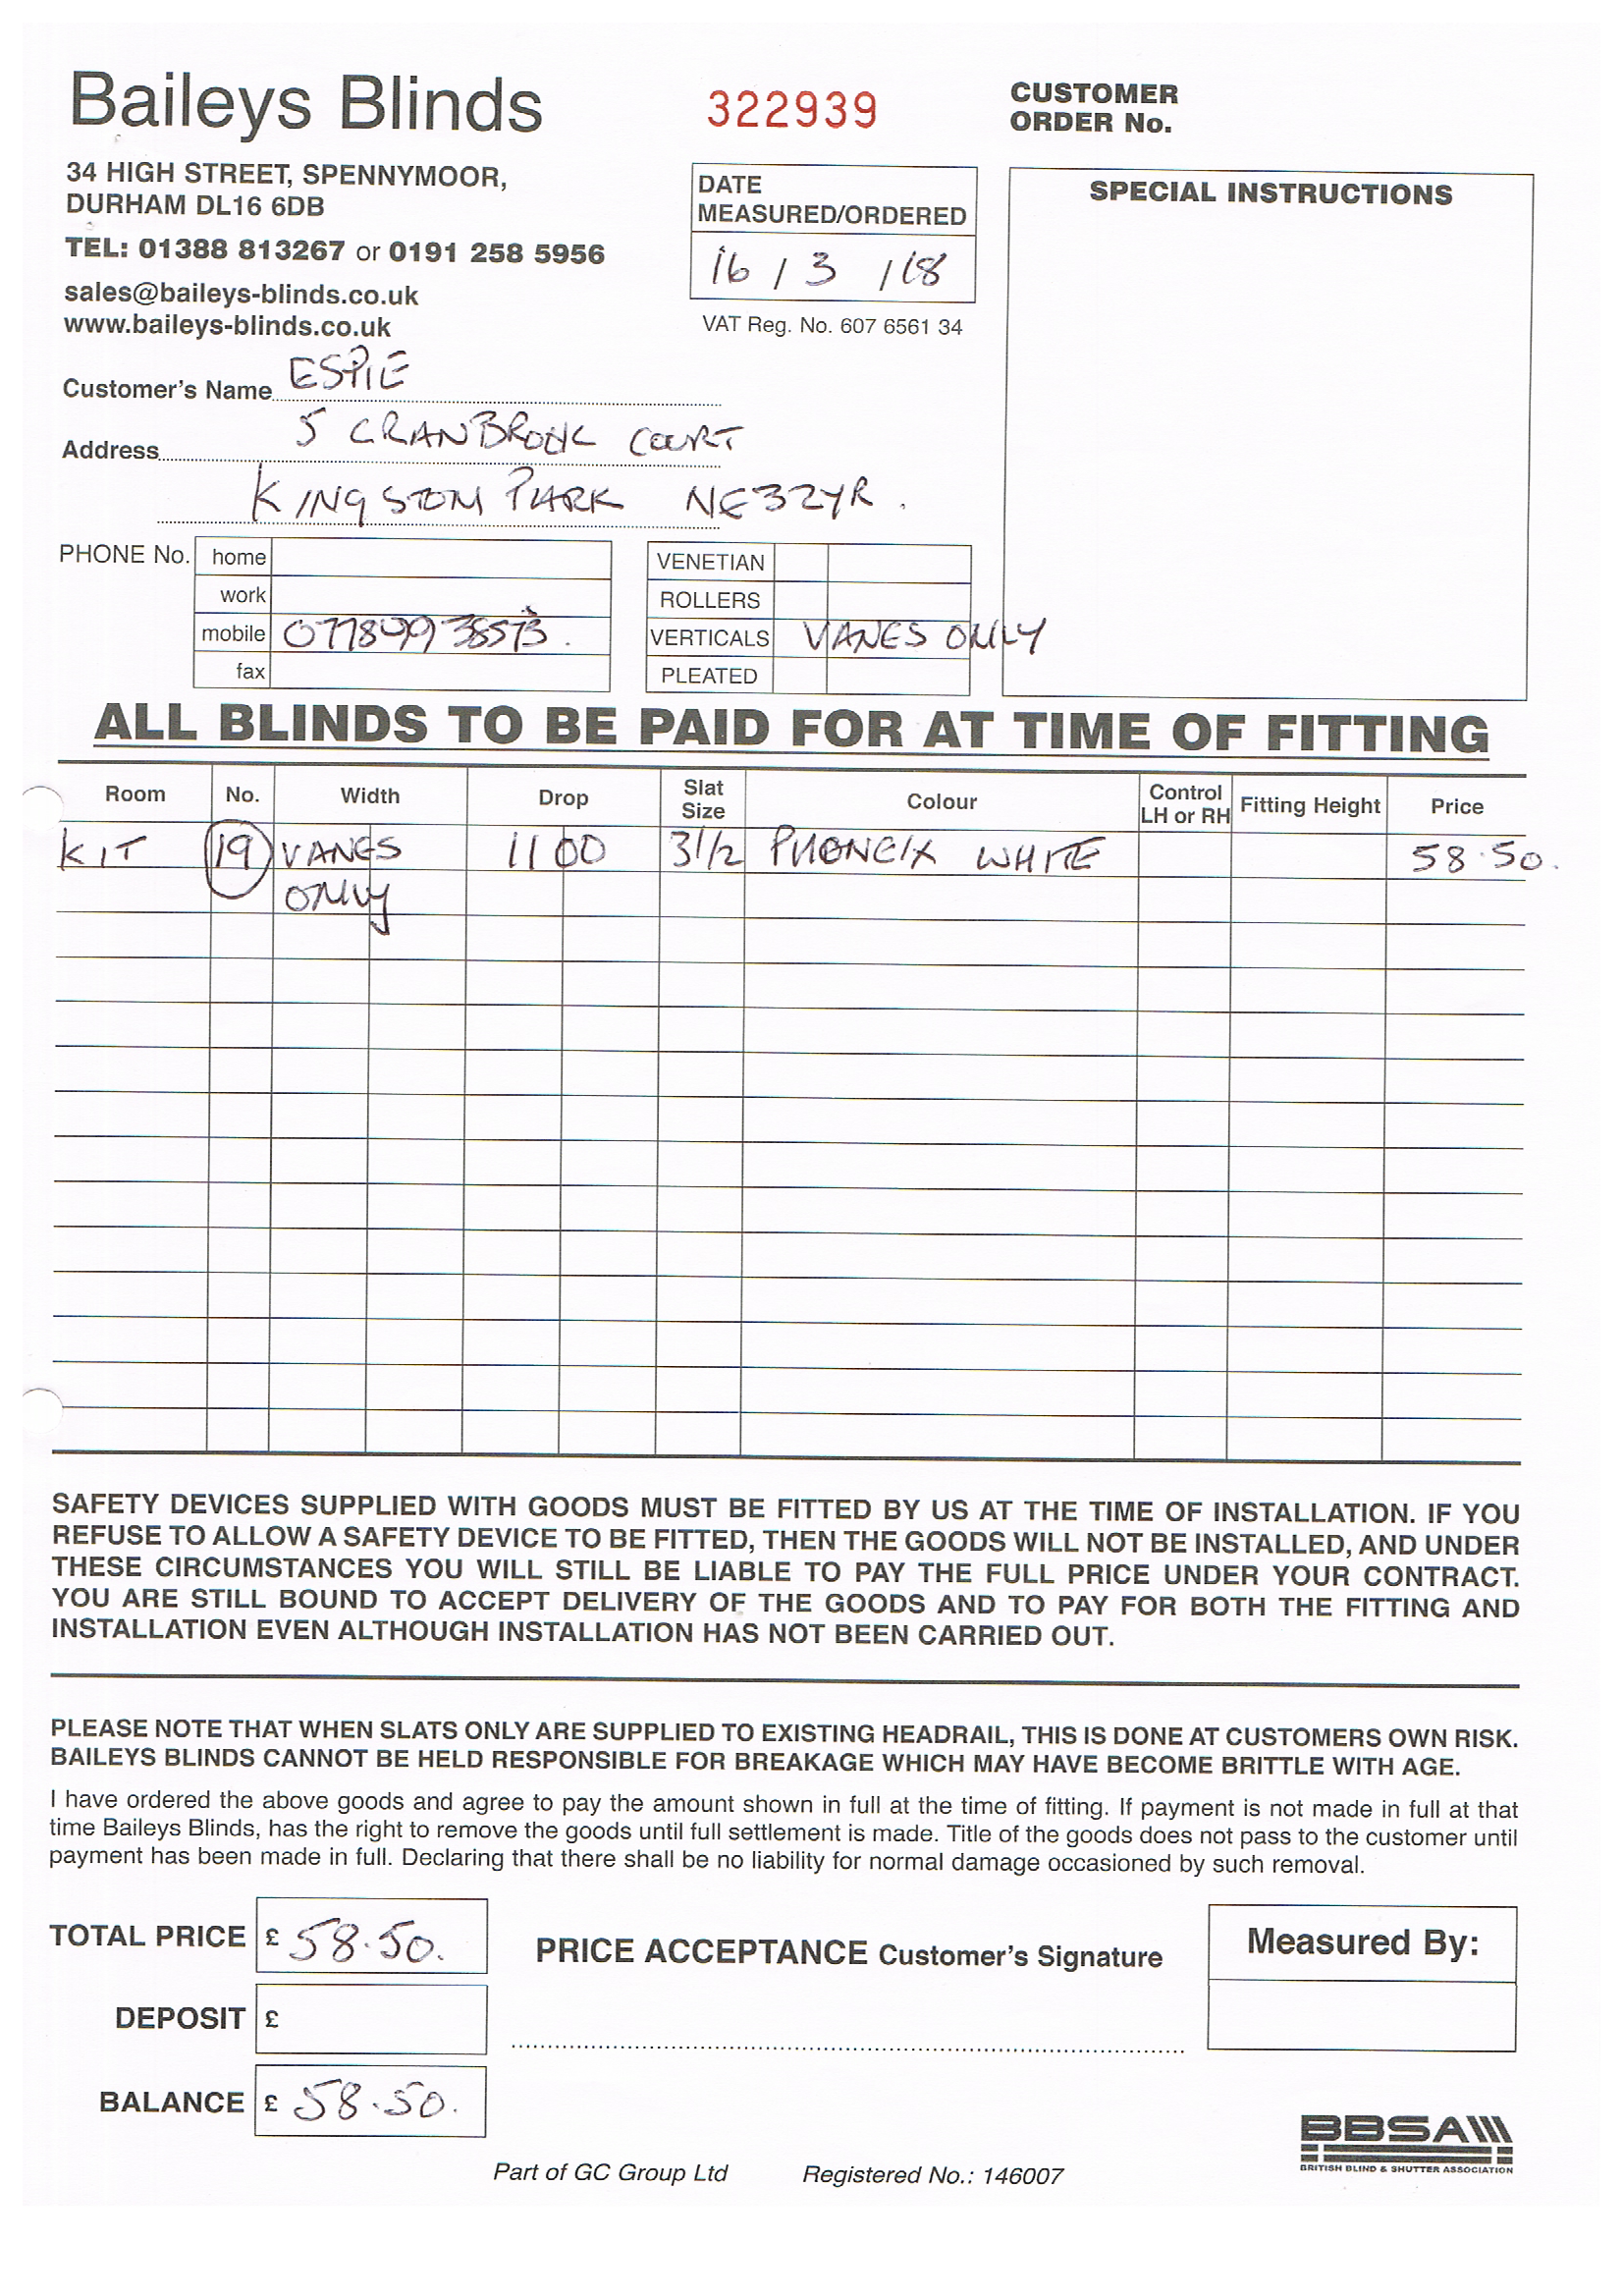 Baileys Blinds
322939
CUSTOMER
ORDER No.
34 HIGH STREET, SPENNYMOOR,
DURHAM DL16 6DB
TEL: 01388 813267 or 0191 258 5956
sales@baileys-blinds.co.uk
www.baileys-blinds.co.uk
DATE
MEASURED/ORDERED
16 / 3 / 18
VAT Reg. No. 607 6561 34
SPECIAL INSTRUCTIONS
Customer's Name ESPIE
Address 5 CRANBROOK COURT
KINGSTON PARK NE32YR.
PHONE No. home
work
mobile
fax
VENETIAN
ROLLERS
VERTICALS VANES ONLY
PLEATED
ALL BLINDS TO BE PAID FOR AT TIME OF FITTING
Room No. Width Drop Slat Size Colour Control LH or RH Fitting Height Price
KIT 19 VANES 1100 3 1/2 PHONEIX WHITE 58.50.
ONLY
SAFETY DEVICES SUPPLIED WITH GOODS MUST BE FITTED BY US AT THE TIME OF INSTALLATION. IF YOU
REFUSE TO ALLOW A SAFETY DEVICE TO BE FITTED, THEN THE GOODS WILL NOT BE INSTALLED, AND UNDER
THESE CIRCUMSTANCES YOU WILL STILL BE LIABLE TO PAY THE FULL PRICE UNDER YOUR CONTRACT.
YOU ARE STILL BOUND TO ACCEPT DELIVERY OF THE GOODS AND TO PAY FOR BOTH THE FITTING AND
INSTALLATION EVEN ALTHOUGH INSTALLATION HAS NOT BEEN CARRIED OUT.
PLEASE NOTE THAT WHEN SLATS ONLY ARE SUPPLIED TO EXISTING HEADRAIL, THIS IS DONE AT CUSTOMERS OWN RISK.
BAILEYS BLINDS CANNOT BE HELD RESPONSIBLE FOR BREAKAGE WHICH MAY HAVE BECOME BRITTLE WITH AGE.
I have ordered the above goods and agree to pay the amount shown in full at the time of fitting. If payment is not made in full at that
time Baileys Blinds, has the right to remove the goods until full settlement is made. Title of the goods does not pass to the customer until
payment has been made in full. Declaring that there shall be no liability for normal damage occasioned by such removal.
TOTAL PRICE £ 58.50.
PRICE ACCEPTANCE Customer's Signature
Measured By:
DEPOSIT £
BALANCE £ 58.50.
Part of GC Group Ltd Registered No.: 146007
BBSA
BRITISH BLIND & SHUTTER ASSOCIATION